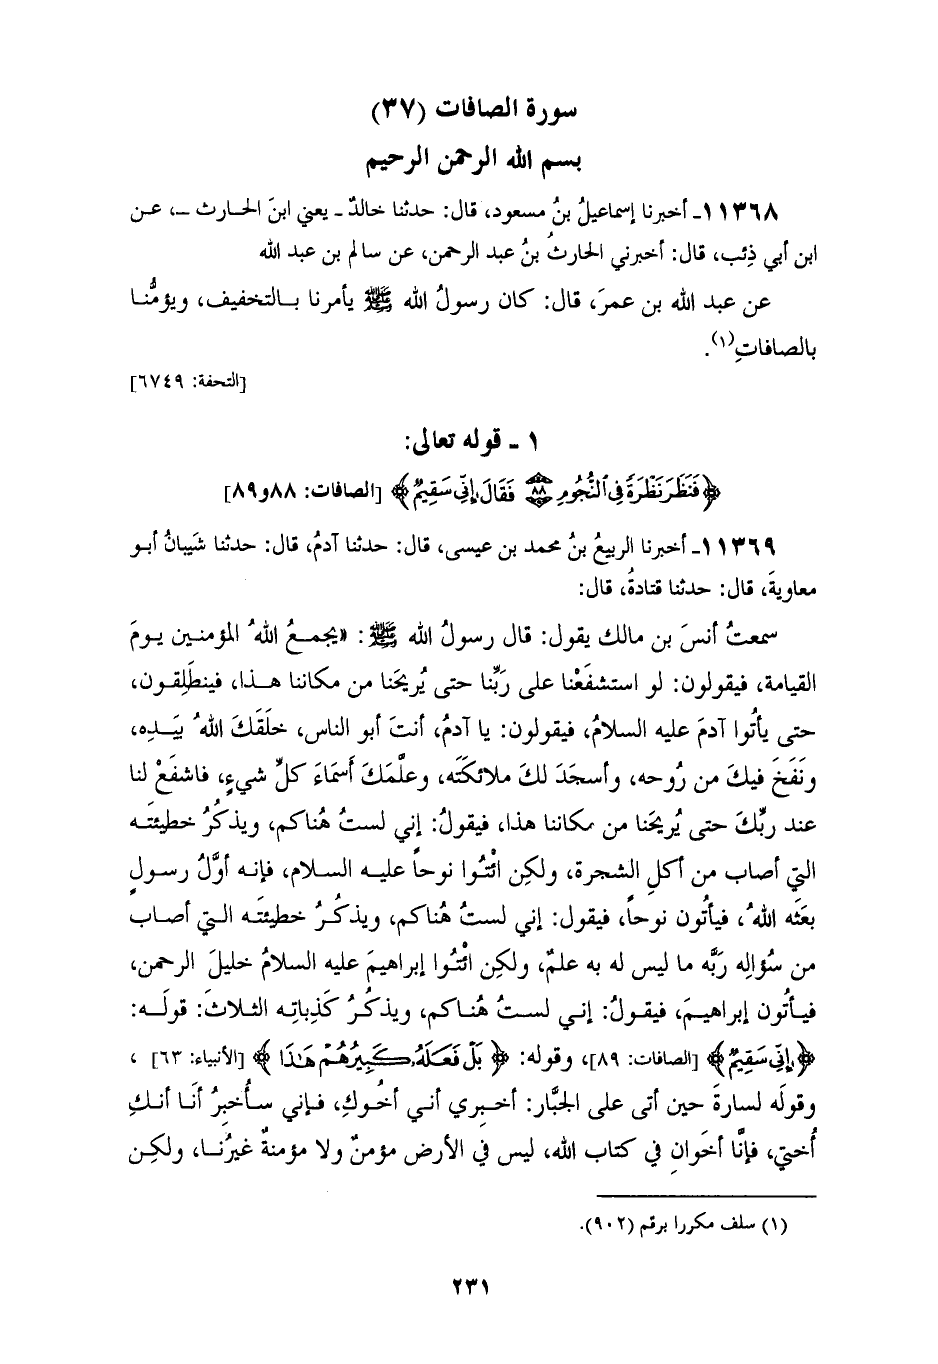 سورة الصافات (٣٧)
بسم الله الرحمن الرحيم
١١٣٦٨- أخبرنا إسماعيلُ بنُ مسعود، قال: حدثنا خالدٌ - يعني ابنَ الحارث -، عن
ابن أبي ذِئب، قال: أخبرني الحارثُ بنُ عبد الرحمن، عن سالم بن عبد الله
عن عبد الله بن عمرَ، قال: كان رسولُ الله ﷺ يأمرنا بالتخفيف، ويؤمُّنا
بالصافاتِ(١).
[التحفة: ٦٧٤٩]
١ - قوله تعالى:
﴿فَنَظَرَ نَظْرَةً فِى ٱلنُّجُومِ ۝٨٨ فَقَالَ إِنِّى سَقِيمٌ﴾ [الصافات: ٨٨و٨٩]
١١٣٦٩- أخبرنا الربيعُ بنُ محمد بن عيسى، قال: حدثنا آدمُ، قال: حدثنا شَيبانُ أبو
معاويةَ، قال: حدثنا قتادةُ، قال:
سمعتُ أنسَ بن مالك يقول: قال رسولُ الله ﷺ: «يجمعُ اللهُ المؤمنين يومَ
القيامة، فيقولون: لو استشفَعْنا على رَبِّنا حتى يُريحَنا من مكاننا هذا، فينطَلِقون،
حتى يأتُوا آدمَ عليه السلامُ، فيقولون: يا آدمُ، أنتَ أبو الناس، خلَقَكَ اللهُ بيَدِه،
ونَفَخَ فيكَ من رُوحه، وأسجَدَ لكَ ملائكتَه، وعلَّمَكَ أَسماءَ كلِّ شيءٍ، فاشفَعْ لنا
عند ربِّكَ حتى يُريحَنا من مكاننا هذا، فيقولُ: إني لستُ هُناكم، ويذكرُ خطيئتَه
التي أصاب من أكلِ الشجرة، ولكِن ائْتُوا نوحاً عليه السلام، فإنه أوَّلُ رسولٍ
بعَثَه اللهُ، فيأتُون نوحاً، فيقول: إني لستُ هُناكم، ويذكرُ خطيئتَه التي أصاب
من سُؤالِه رَبَّه ما ليس له به علمٌ، ولكِن ائْتُوا إبراهيمَ عليه السلامُ خليلَ الرحمن،
فيأتُون إبراهيمَ، فيقولُ: إني لستُ هُناكم، ويذكُرُ كَذِباتِه الثلاثَ: قولَه:
﴿إِنِّى سَقِيمٌ﴾ [الصافات: ٨٩]، وقوله: ﴿بَلْ فَعَلَهُۥ كَبِيرُهُمْ هَٰذَا﴾ [الأنبياء: ٦٣] ،
وقولَه لسارةَ حين أتى على الجبَّار: أخبِري أني أخُوكِ، فإني سأُخبرُ أنَا أنكِ
أُختي، فإنَّا أخَوانِ في كتاب الله، ليس في الأرض مؤمنٌ ولا مؤمنةٌ غيرُنا، ولكِن
(١) سلف مكررا برقم (٩٠٢).
٢٣١